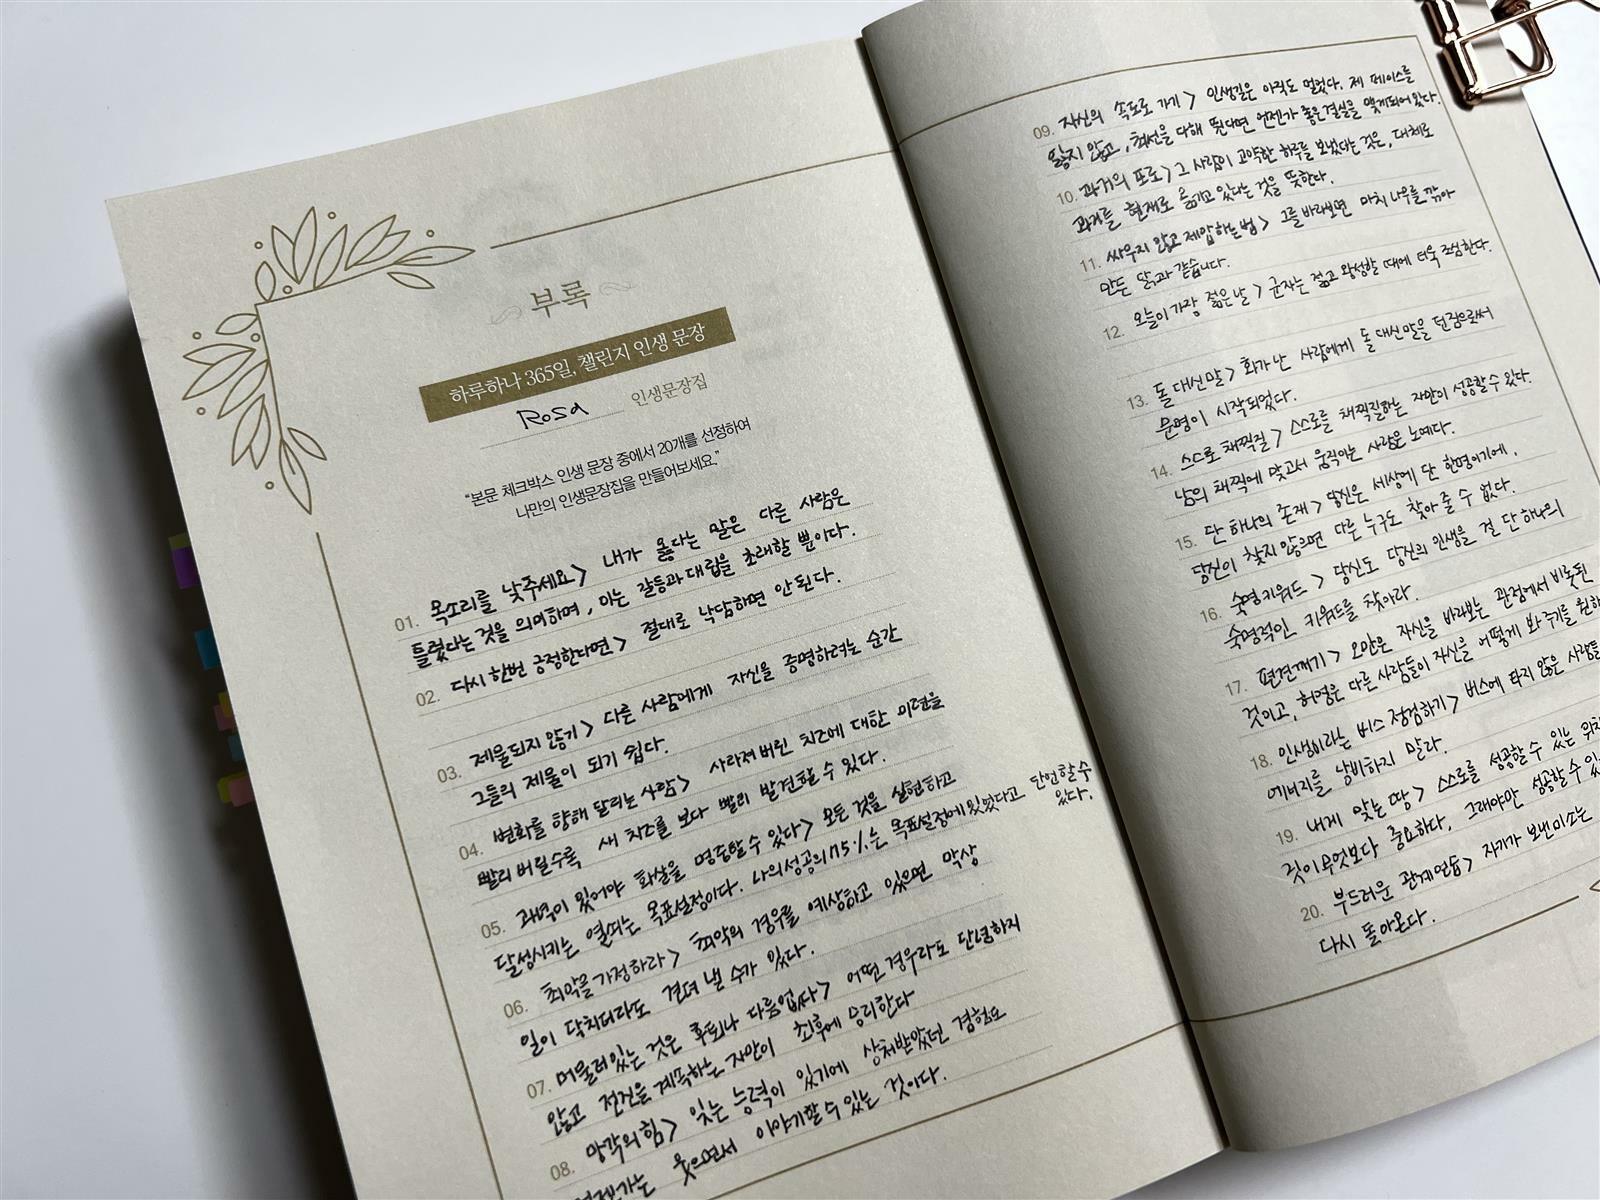 부록
하루하나 365일, 챌린지 인생 문장
Rosa 인생문장집
"본문 체크박스 인생 문장 중에서 20개를 선정하여
나만의 인생문장집을 만들어보세요."
01. 목소리를 낮추세요> 내가 옳다는 말은 다른 사람은
틀렸다는 것을 의미하며, 이는 갈등과 대립을 초래할 뿐이다.
02. 다시 한번 긍정한다면> 절대로 낙담하면 안된다.
03. 제물되지 않기> 다른 사람에게 자신을 증명하려는 순간
그들의 제물이 되기 쉽다.
04. 변화를 향해 달리는 사람> 사라져버린 치즈에 대한 미련을
빨리 버릴수록 새 치즈를 보다 빨리 발견할 수 있다.
05. 과녁이 있어야 화살을 명중할 수 있다> 모든 것을 실현하고
달성시키는 열쇠는 목표설정이다. 나의성공의 75%는 목표설정에있었다고 단언할수
있다.
06. 최악을 가정하라> 최악의 경우를 예상하고 있으면 막상
일이 닥치더라도 견뎌 낼 수가 있다.
07. 머물러있는 것은 후퇴나 다름없다> 어떤 경우라도 단념하지
않고 전진을 계속하는 자만이 최후에 승리한다
08. 망각의 힘> 잊는 능력이 있기에 상처받았던 경험도
언젠가는 웃으면서 이야기할 수 있는 것이다.
09. 자신의 속도로 가기> 인생길은 아직도 멀었다. 제 페이스를
잃지 않고, 최선을 다해 뛴다면 언젠가 좋은결실을 맺게되어있다.
10. 과거의 포로> 그 사람이 고약한 하루를 보냈다는 것은, 대체로
과거를 현재로 옮기고 있다는 것을 뜻한다.
11. 싸우지 않고 제압하는법> 그를 바라보면 마치 나무를 깎아
만든 닭과 같습니다.
12. 오늘이 가장 젊은 날> 군자는 젊고 왕성할 때에 더욱 조심한다.
13. 돌 대신 말> 화가 난 사람에게 돌 대신 말을 던짐으로써
문명이 시작되었다.
14. 스스로 채찍질> 스스로를 채찍질하는 자만이 성공할 수 있다.
남의 채찍에 맞고서 움직이는 사람은 노예다.
15. 단 하나의 존재> 당신은 세상에 단 한명이기에,
당신이 찾지 않으면 다른 누구도 찾아 줄 수 없다.
16. 숙명키워드> 당신도 당신의 인생을 걸 단 하나의
숙명적인 키워드를 찾아라.
17. 편견깨기> 오만은 자신을 바라보는 관점에서 비롯된
것이고, 허영은 다른 사람들이 자신을 어떻게 봐 주기를 원하
18. 인생이라는 버스 점검하기> 버스에 타지 않은 사람들
에너지를 낭비하지 말라.
19. 내게 맞는 땅> 스스로를 성공할 수 있는 위치
것이 무엇보다 중요하다. 그래야만 성공할 수 있
20. 부드러운 관계연습> 자기가 보낸미소는
다시 돌아온다.